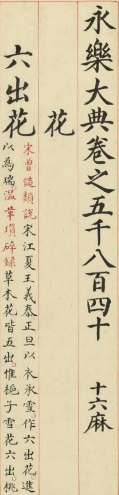 永樂大典卷之五千八百四十　十六麻
花
六出花
宋曾慥類說宋江夏王義恭正旦以衣承雪。作六出花進
以為瑞。溫革瑣碎錄草木花皆五出。惟梔子雪花六出。桃